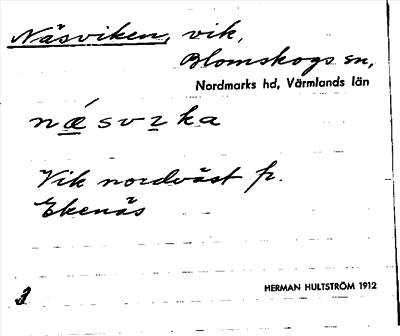 Näsviken, vik,
Blomskogs sn,
Nordmarks hd, Värmlands län
næ´svɪka
Vik nordväst fr.
Ekenäs
3
HERMAN HULTSTRÖM 1912